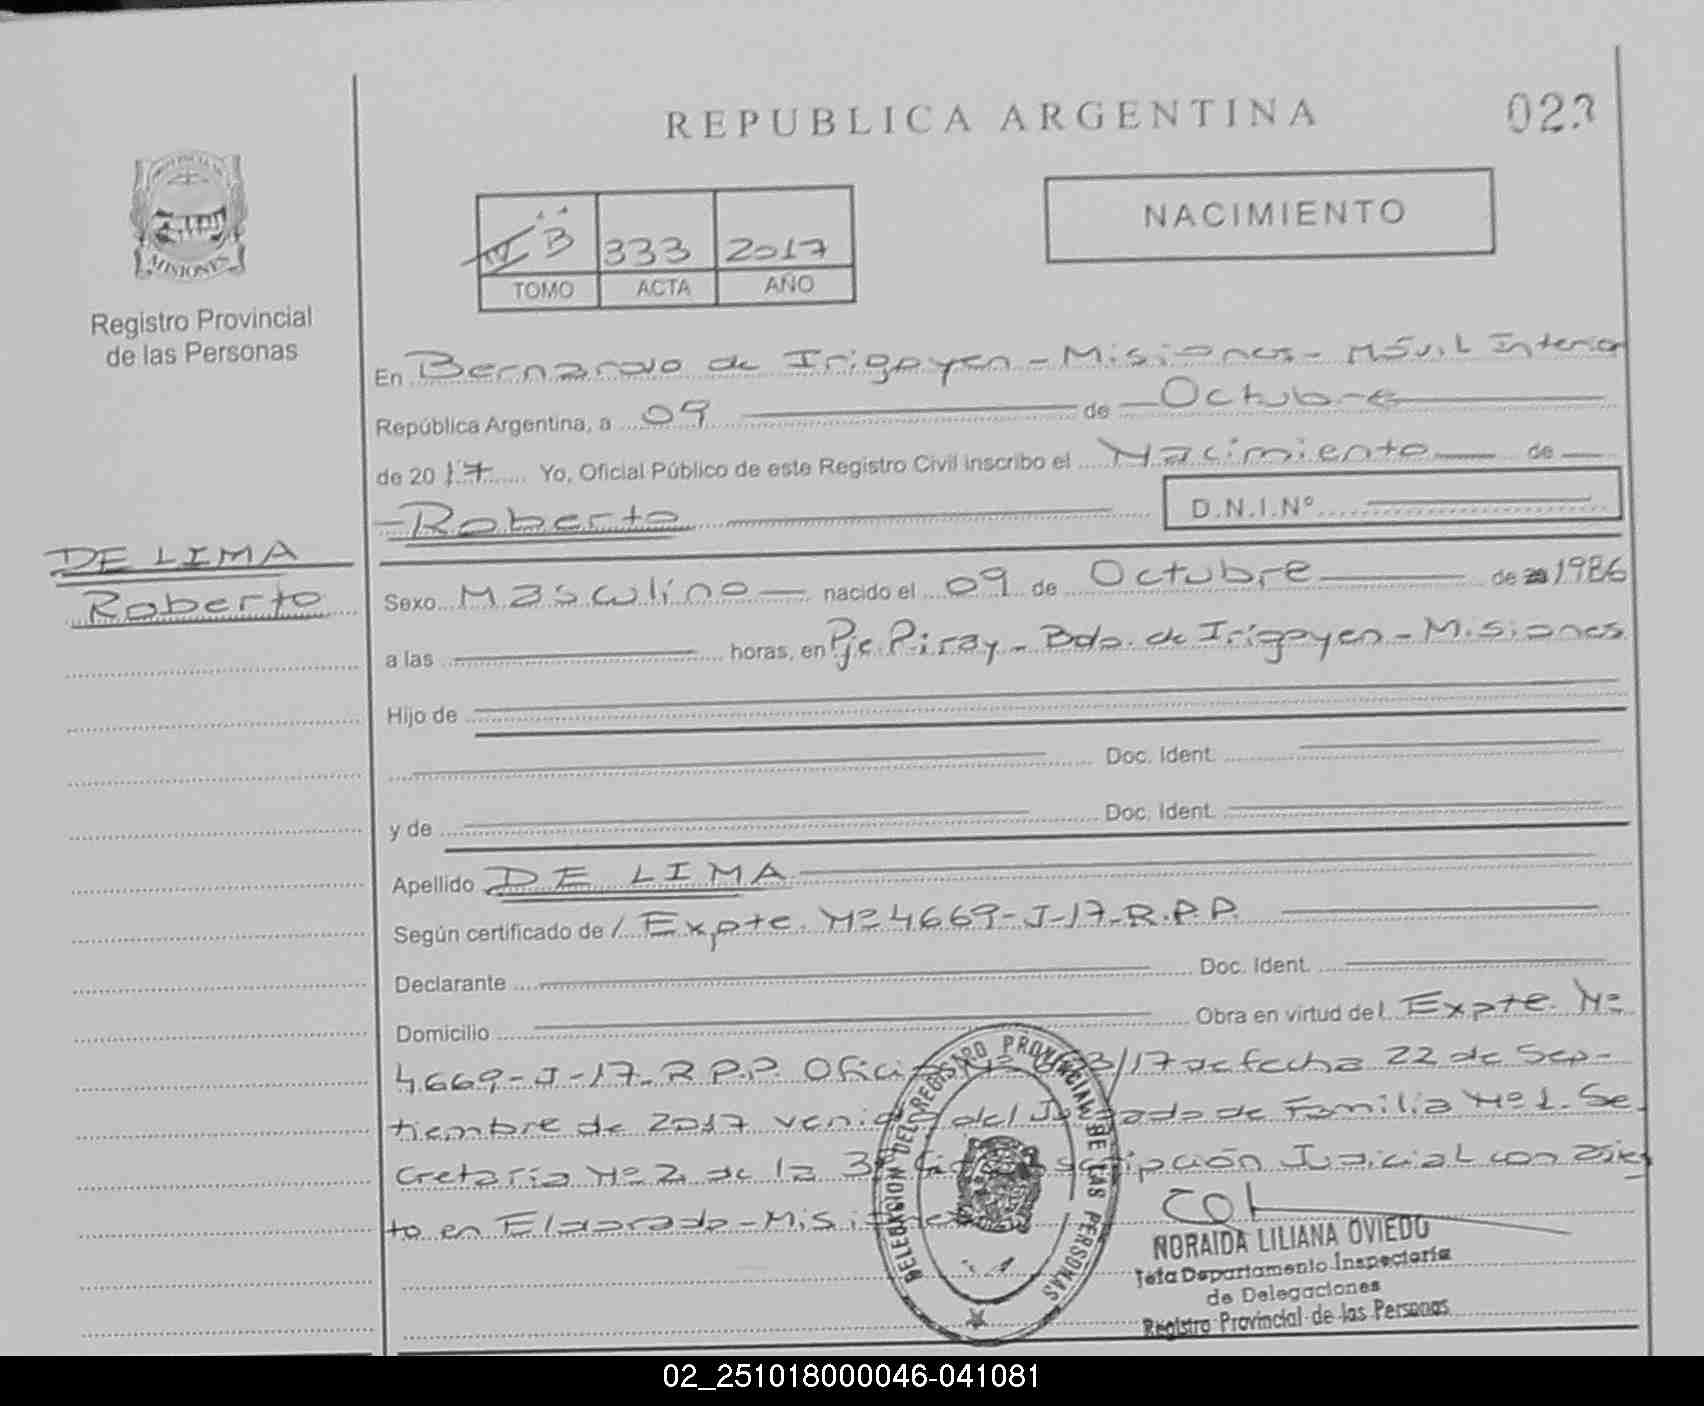 REPUBLICA ARGENTINA
023
PROVINCIA DE
MISIONES
Registro Provincial
de las Personas
B 333 2017
TOMO ACTA AÑO
NACIMIENTO
En Bernardo de Irigoyen - Misiones - Móvil Interior
República Argentina, a 09 de Octubre
de 2017 Yo, Oficial Público de este Registro Civil inscribo el Nacimiento de
Roberto D.N.I.Nº
DE LIMA
Roberto
Sexo Masculino nacido el 09 de Octubre de 1986
a las horas, en Pje. Piray - Bdo. de Irigoyen - Misiones
Hijo de
Doc. Ident.
y de Doc. Ident.
Apellido DE LIMA
Según certificado de / Expte. Nº 4669-J-17-R.P.P.
Declarante Doc. Ident.
Domicilio Obra en virtud del Expte. Nº
4669-J-17-R.P.P. Oficio 3/17 de fecha 22 de Sep-
tiembre de 2017 venido del Juzgado de Familia Nº 1. Se
cretaría Nº 2 de la 3º Circunscripción Judicial con asien
to en Eldorado - Misiones
DELEGACION DEL REGISTRO PROVINCIAL DE LAS PERSONAS
NORAIDA LILIANA OVIEDO
Jefa Departamento Inspectoría
de Delegaciones
Registro Provincial de las Personas
02_251018000046-041081